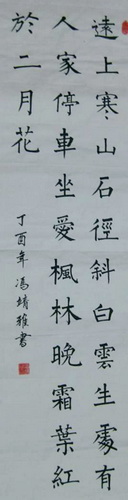 遠上寒山石徑斜白雲生處有
人家停車坐愛楓林晚霜葉紅
於二月花
丁酉年馮靖雅書